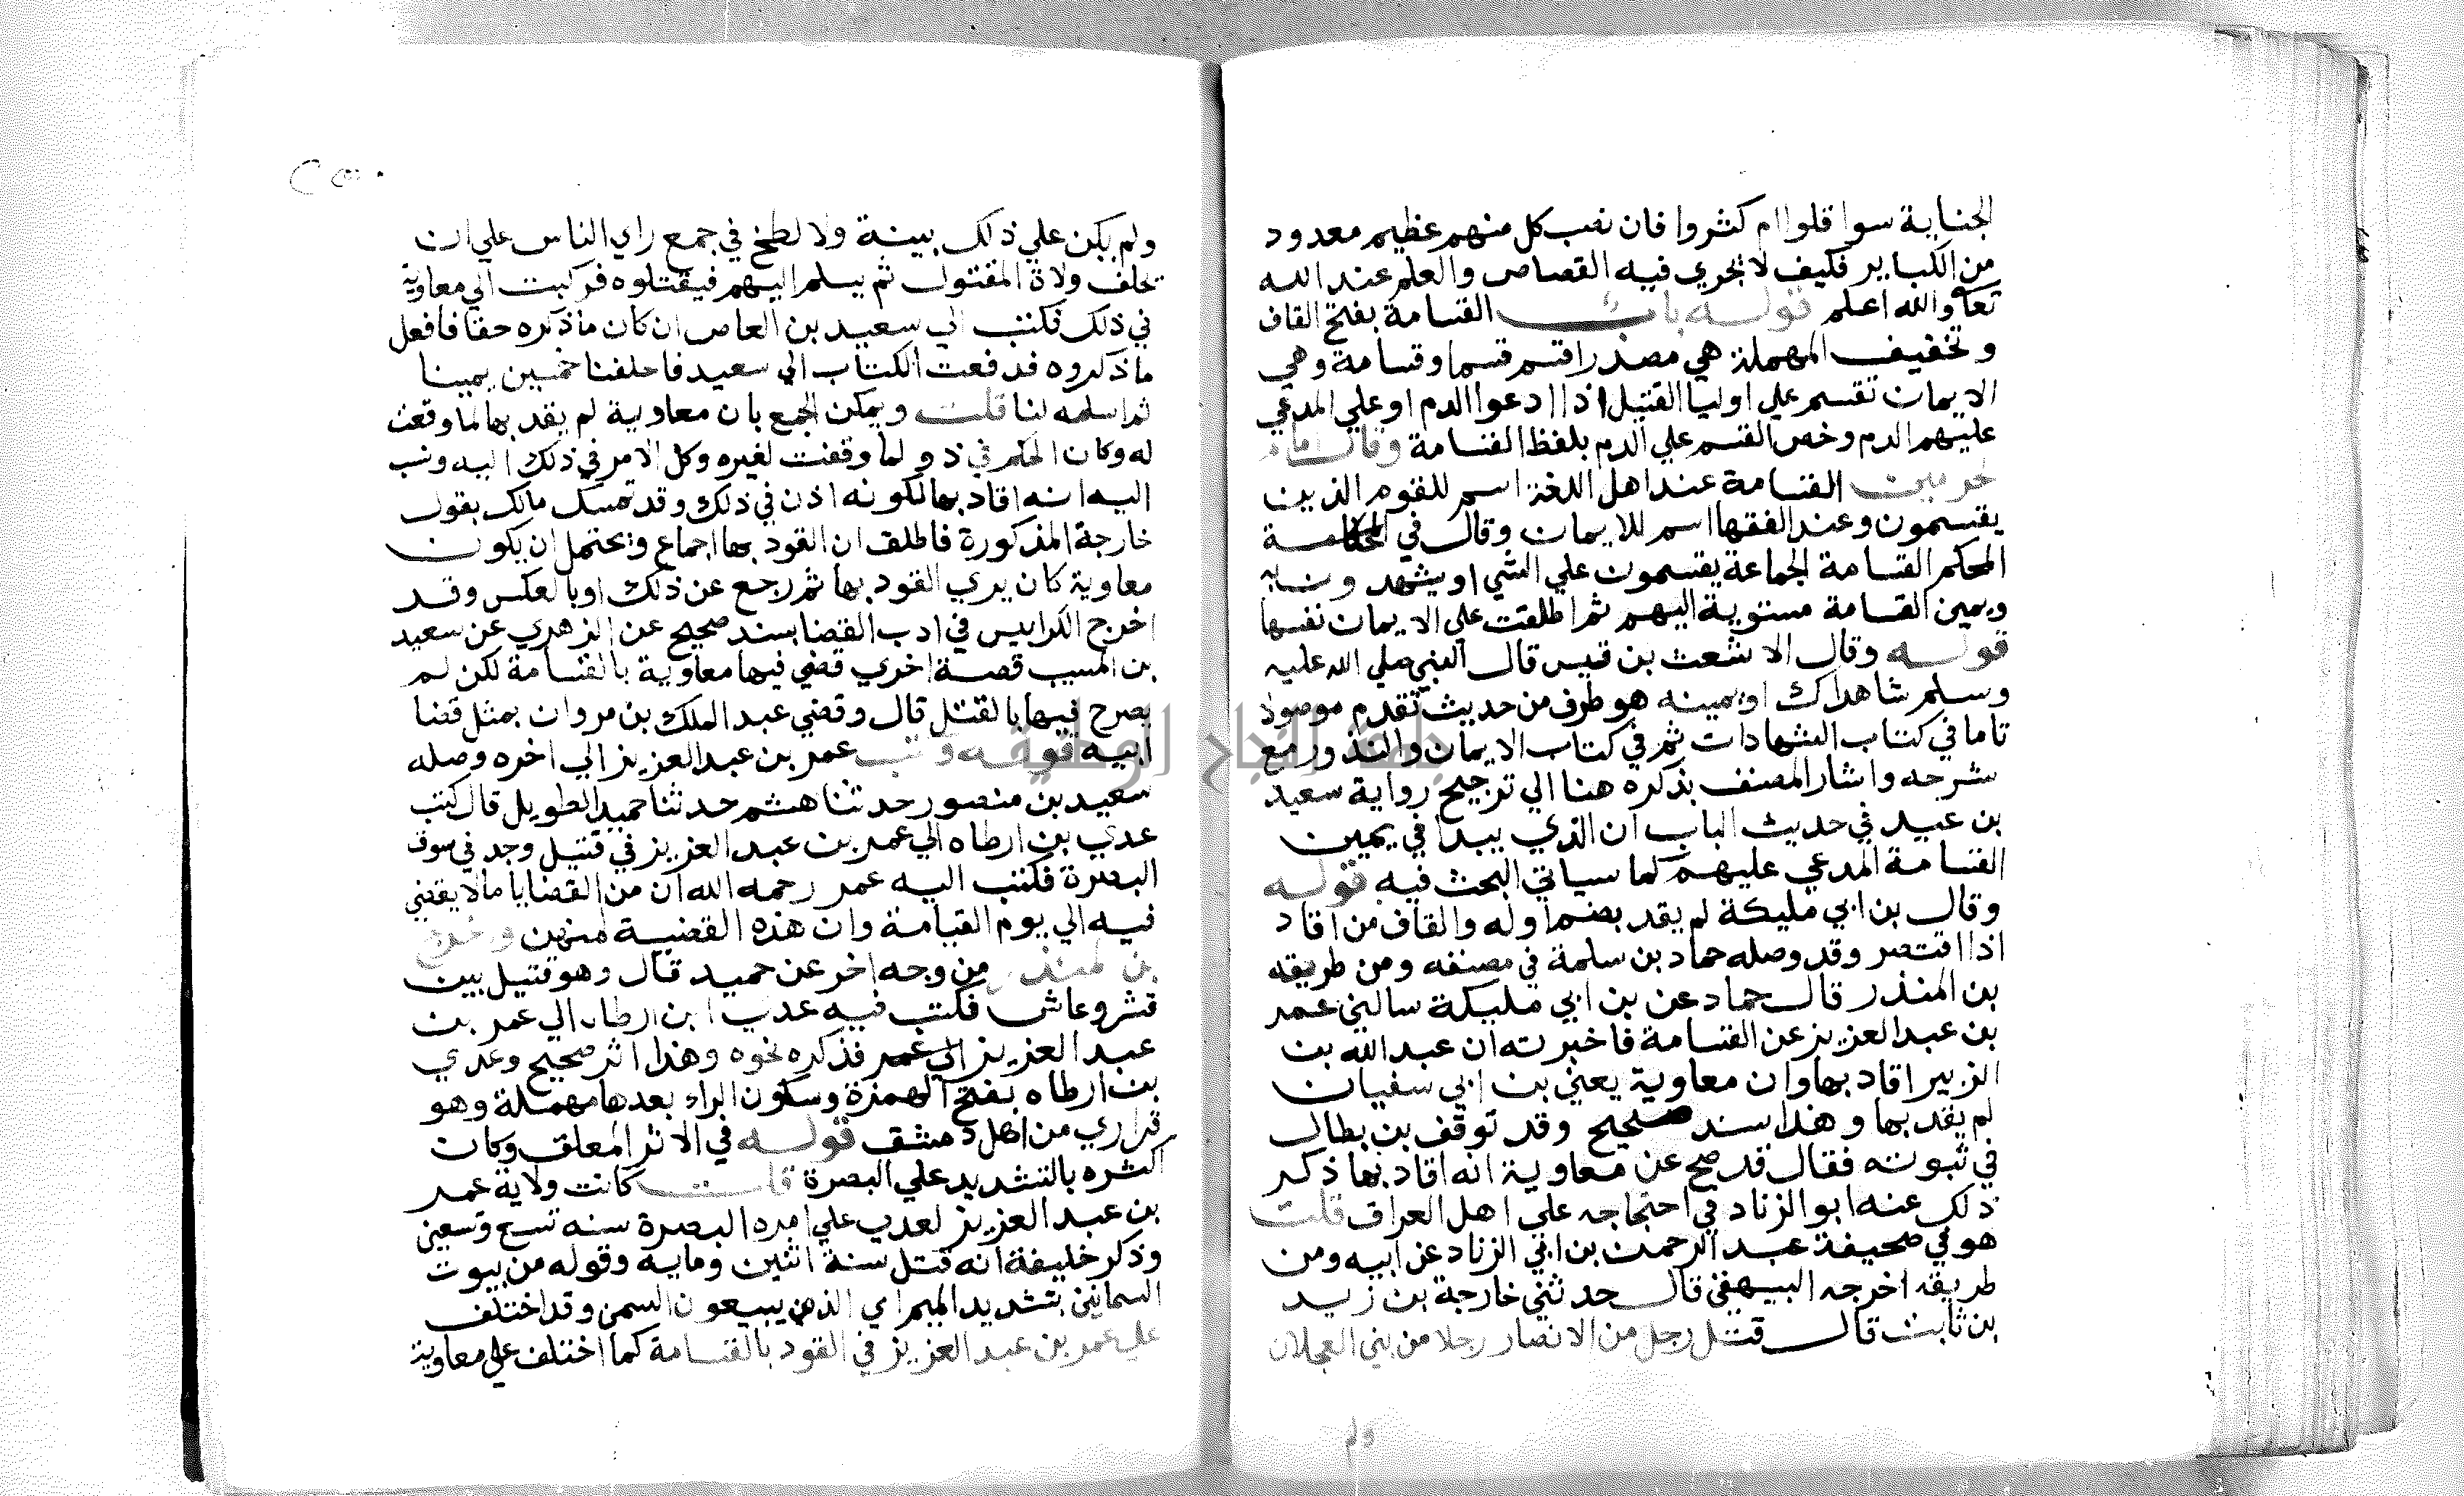 الجناية سوا قلوا ام كثروا فان نصب كل منهم عظيم معدود
من الكباير فكيف لا يجري فيه القصاص والعلم عند الله
تعا والله اعلم قوله باب القسامة بفتح القاف
و تخفيف المهملة هي مصدر اقسم قسما وقسامة وهي
الايمان تقسم علي اوليا القتيل اذا ادعوا الدم او علي المدعي
عليهم الدم وخص القسم علي الدم بلفظ القسامة وقال امام
الحرمين القسامة عند اهل اللغة اسم للقوم الذين
يقسمون وعند الفقها اسم للايمان وقال في
المحكم القسامة الجماعة يقسمون علي الشي او يشهد ون به
ويمين القسامة منسوبة اليهم ثم اطلقت علي الايمان نفسها
قوله وقال الاشعث بن قيس قال النبي صلي الله عليه
وسلم شاهداك او يمينه هو طرف من حديث تقدم موصولا
تاما في كتاب الشهادات ثم في كتاب الايمان والنذور مع
شرحه واشار المصنف بذكره هنا الي ترجيح رواية سعيد
بن عبيد في حديث الباب ان الذي يبدا في يمين
القسامة المدعي عليهم كما سياتي البحث فيه قوله
وقال بن ابي مليكة لم يقد بضم اوله والقاف من اقاد
اذا اقتصر وقد وصله حماد بن سلمة في مصنفه ومن طريقه
بن المنذر قال حماد عن بن ابي مليكة سالني عمر
بن عبد العزيز عن القسامة فاخبرته ان عبد الله بن
الزبير اقاد بها وان معاوية يعني بن ابي سفيان
لم يقد بها وهذا سند صحيح وقد توقف بن بطال
في ثبوته فقال قد صح عن معاوية انه اقاد بها ذكر
ذلك عنه ابو الزناد في احتجاجه علي اهل العراق قلت
هو في صحيفة عبد الرحمن بن ابي الزناد عن ابيه ومن
طريقه اخرجه البيهقي قال حدثني خارجة بن زيد
بن ثابت قال قتل رجل من الانصار رجلا من بني العجلان
ولم
ولم يكن علي ذلك بينة ولا لطخ في جمع راي الناس علي ان
يحلف ولاة المقتول ثم يسلم اليهم فيقتلوه فركبت الي معاوية
في ذلك فكتب الي سعيد بن العاص ان كان ما ذكره حقا فافعل
ما ذكروه فدفعت الكتاب الي سعيد فاحلفنا خمسين يمينا
ثم اسلمه لنا قلت ويمكن الجمع بان معاوية لم يقد بها لما وقعت
له وكان الحكم في ذ و لما وقفت لغيره وكل الامر في ذلك اليه ونسب
اليه انه اقاد بها لكونه اذن في ذلك وقد تمسك مالك بقول
خارجة المذكورة فاطلق ان القود بها اجماع ويحتمل ان يكون
معاوية كان يري القود بها ثم رجع عن ذلك او بالعكس وقد
اخرج الكرابيس في ادب القضا بسند صحيح عن الزهري عن سعيد
بن المسيب قصة اخري قضي فيها معاوية بالقسامة لكن لم
يصرح فيها بالقتل قال وقضي عبد الملك بن مروان بمثل قضا
ابيه قوله وكتب عمر بن عبد العزيز الي اخره وصله
سعيد بن منصور حدثنا هشم حدثنا حميد الطويل قال كتب
عدي بن ارطاه الي عمر بن عبد العزيز في قتيل وجد في سوق
البصرة فكتب اليه عمر رحمه الله ان من القضايا ما لا يقضي
فيه الي يوم القيامة وان هذه القضية لمنهن واخرج
بن المنذر من وجه اخر عن حميد قال وهو قتيل بين
قشر وعاش فكتب فيه عدي ابن ارطاه الي عمر بن
عبد العزيز الي عمر فذكره نحوه وهذا اثر صحيح وعدي
بن ارطاه بفتح الهمزة وسكون الراء بعدها مهملة وهو
فزاري من اهل دمشق قوله في الاثر المعلق وكان
اكثره بالتشديد علي البصرة قلت كانت ولاية عمر
بن عبد العزيز لعدي علي امره البصرة سنه تسع وتسعين
وذكر خليفة انه قتل سنة اثنين ومايه وقوله من بيوت
السمانين بتشديد الميم اي الذين يبيعون السمن وقد اختلف
علي عمر بن عبد العزيز في القود بالقسامة كما اختلف علي معاوية
جامعة النجاح الوطنية